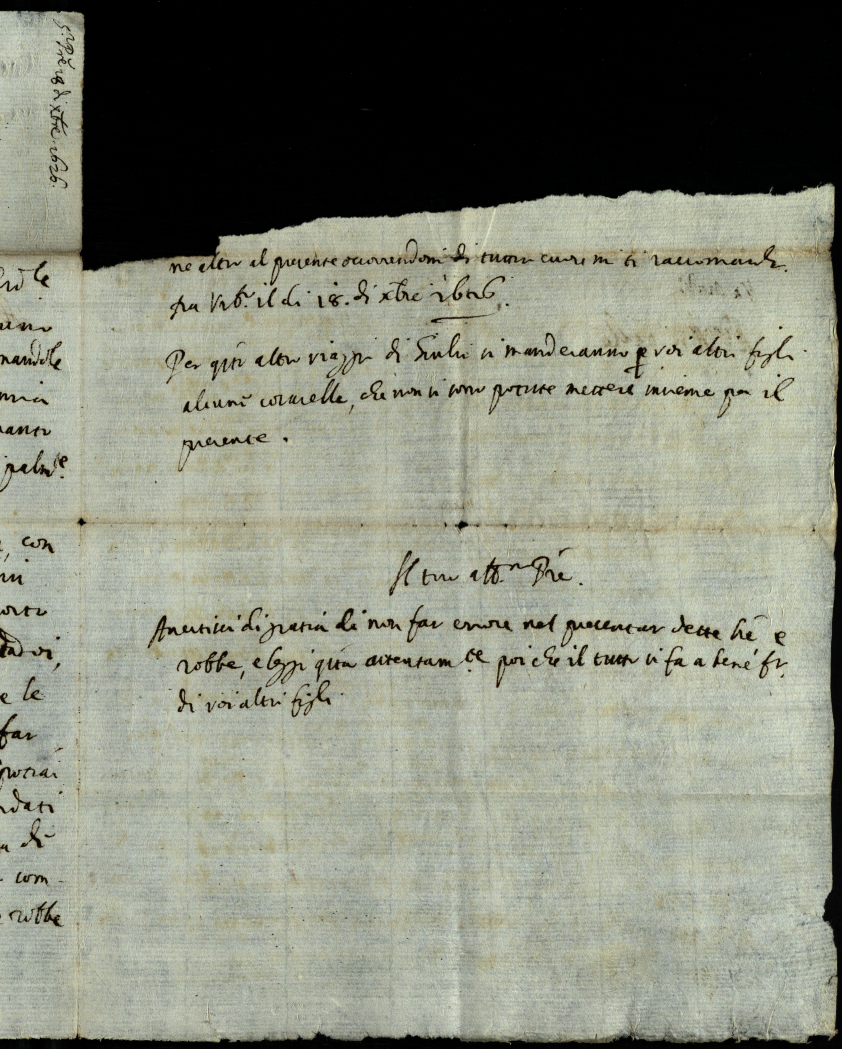 S.r Pre 18 di xbre 1626.
ne altro al presente occorrendomi di tutto cuore mi ti raccomando.
da Urb.o il di 18. di xbre 1626.
Per q.sto altro viaggio di Giulio si manderanno p voi altri figli
alcune cosarelle, che non si sono potute mettere insieme per il
presente.
Il tuo aff.mo Pre.
Avertisci di gratia di non far errore nel presentar dette l.re e
robbe, e leggi q.sta attentam.te poi che il tutto si fa a benef.o
di voi altri figli
mandole
anto
palm.te
, con
mi
e le
far
dati
di
com-
robbe